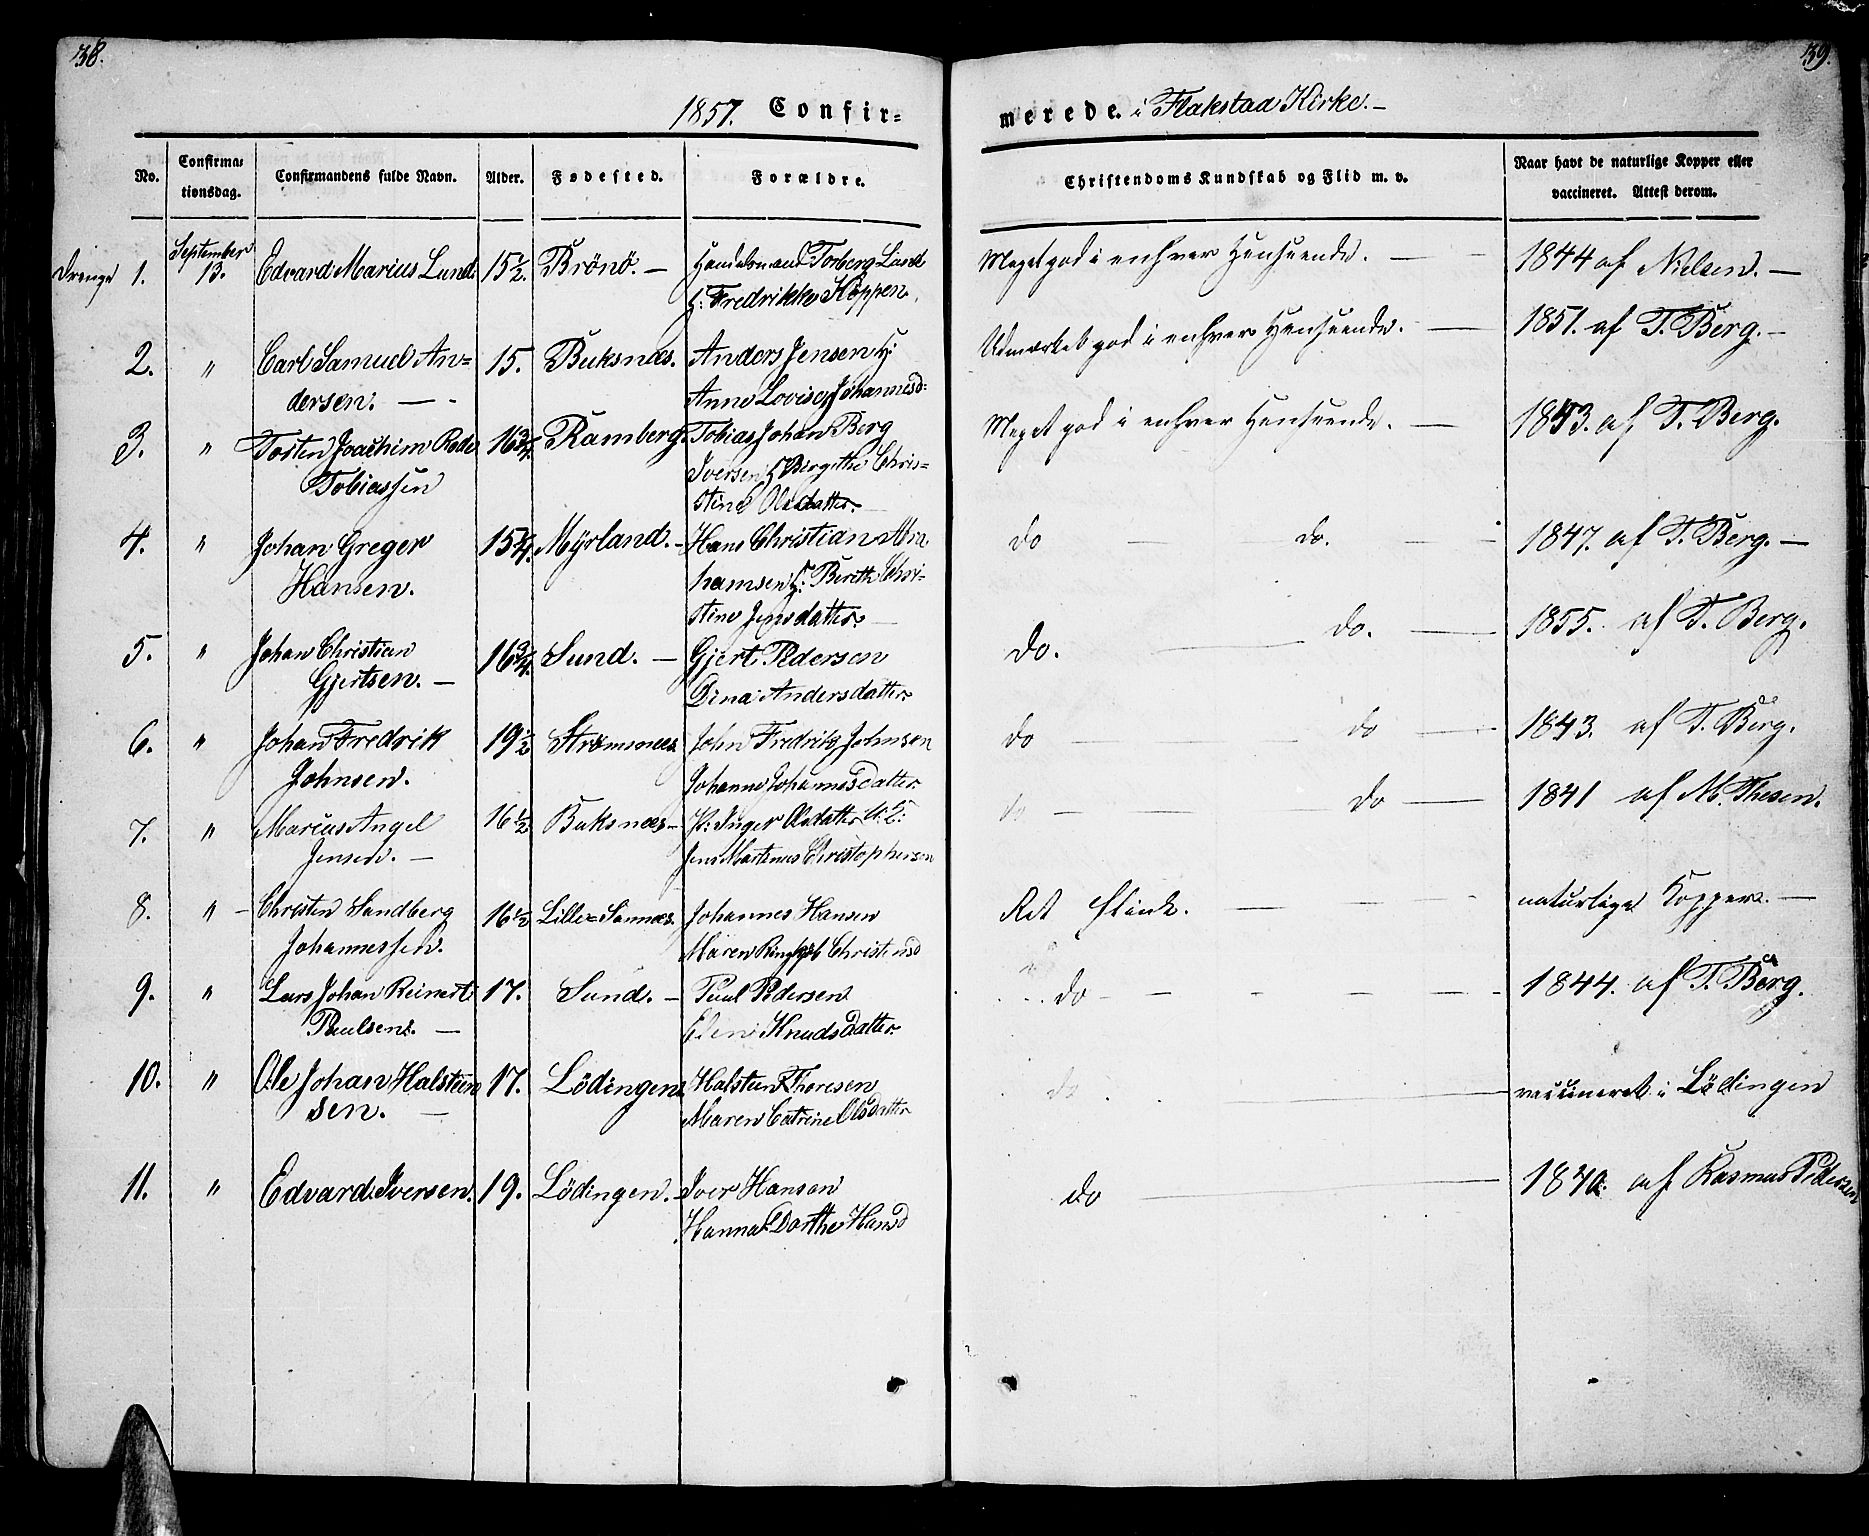 38.
39.
1857. Confir=
merede. i Flakstad Kirke.—
No.
Confirma=
tionsdag.
Confirmandens fulde Navn.
Alder.
Fødested.
Forældre.
Christendoms Kundskab og Flid m. v.
Naar havt de naturlige Kopper eller
vaccineret. Attest derom.
Drenge 1. September 13. Edvard Marius Lund 15 1/2. Brönö. — Handelsmand Torberg Lund
H: Fredrikke Hoppen.
Meget god i enhver Henseende. — — 1844 af Nielsen. —
2. " Carl Samuel An=
dersen. — - 15. Buksnæs. Anders Jensen H:
Anne Lovise Johannesd:
Udmærket god i enhver Henseende. — 1851. af T. Berg. —
3. " Torsten Joachim Rode
Tobiassen 16 3/4. Ramberg. Tobias Johan Berg
Iversen H: Birgithe Chris=
stine Olsdatter.
Meget god i enhver Henseende. — 1843. af T. Berg.
4. " Johan Greger
Hansen. 15 1/4. Myrland. - Hans Christian Abra
hamsen H: Berith Chri-
stine Jensdatter. —
do — do. — — 1847. af T. Berg. —
5. " Johan Christian
Gjertsen. — 16 3/4. Sund. — Gjert Pedersen
Dina Andersdatter
do. — do. — 1855. af T. Berg.
6. " Johan Fredrik
Johnsen. 19 1/2 Strømsnæs John Fredrik Johnsen
Johanne Johannesdatter
do — do — 1843. af T. Berg.
7. " Marius Angel
Jensen. — 16 1/2 Buksnæs — P: Inger Olsdatter U: E:
Jens Martinus Christophersen
do — — do — 1841 af M. Thesen.
8. " - Christen Sandberg
Johannessen. 16 1/2 Lille=Sannæs. Johannes Hansen
Maren Christensd
Ret flink. — — — — naturlige Kopper. —
9. " Lars Johan Reinert
Paulsen. — 17. Sund. — Paul Pedersen
Elen Knudsdatter
do - - - - - 1844. af T. Berg.
10. " Ole Johan Halsteen
sen. — 17. Lödingen Halsteen Thoresen
Maren Catrine Olsdatter
do — vaccineret i Lödingen
11. " Edvard Iversen. 19. Lödingen. Iver Hansen
Hanna Dorthe Hansd
do — 1840. af Rasmus Pedersen